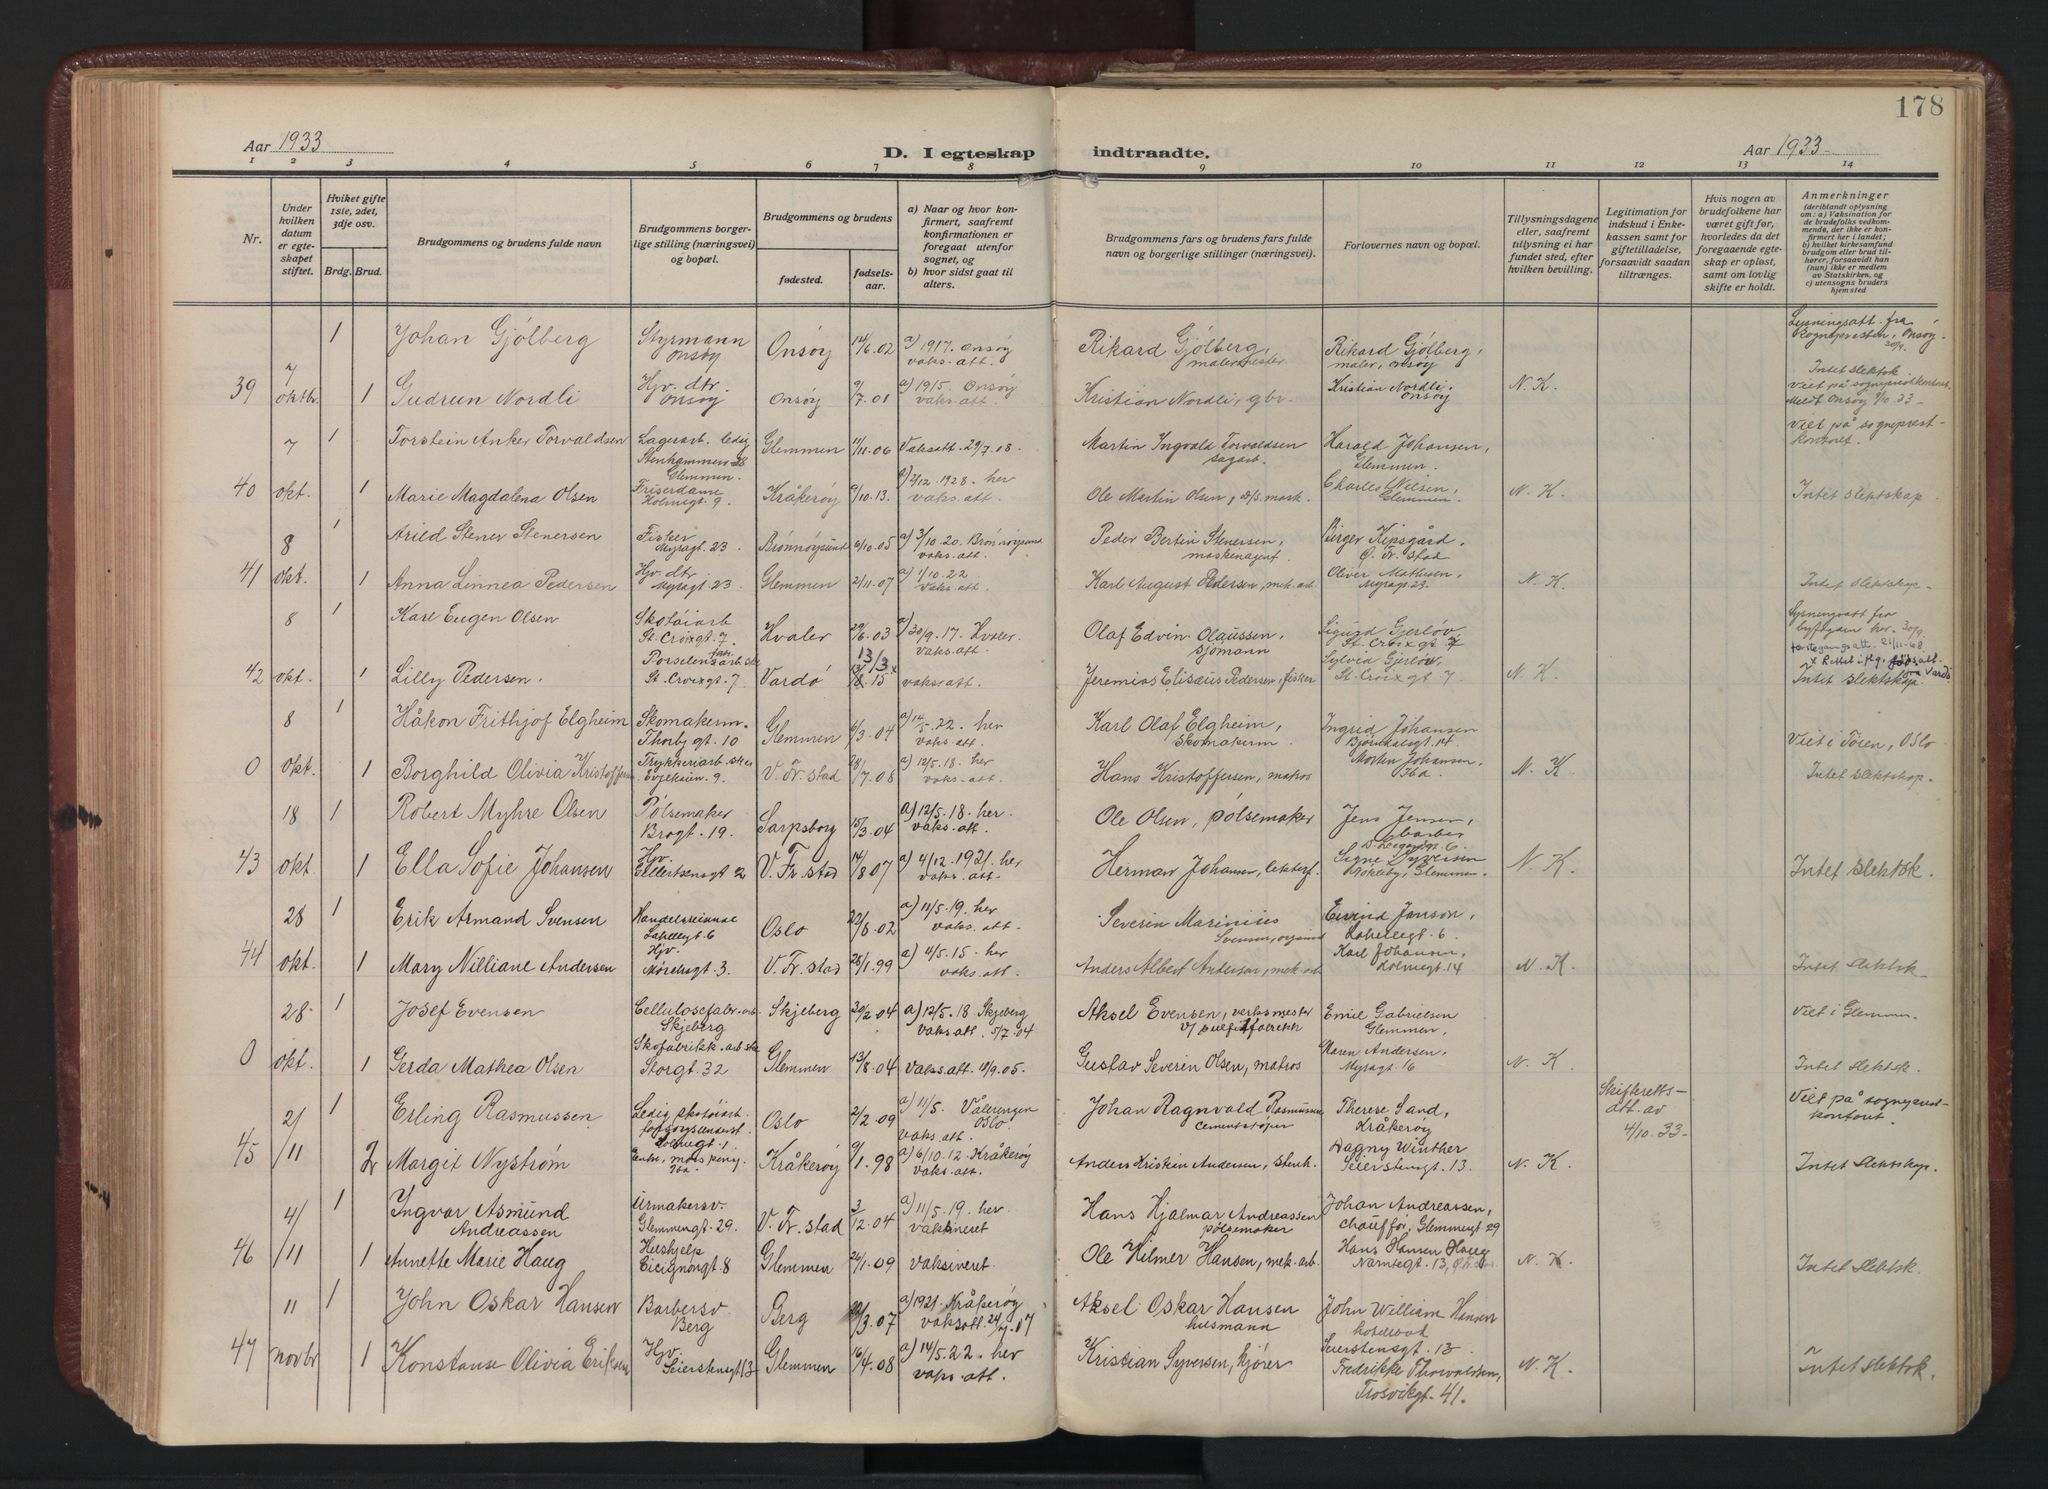 178
Aar 1933
D. I egteskap indtraadte.
Aar 1933
1 2 3 4 5 6 7 8 9 10 11 12 13 14
Nr.
Under hvilken datum er egteskapet stiftet.
Hviket gifte 1ste, 2det, 3dje osv.
Brdg. Brud.
Brudgommens og brudens fulde navn
Brudgommens borgerlige stilling (næringsvei) og bopæl.
Brudgommens og brudens
fødested.
fødselsaar.
a) Naar og hvor konfirmert, saafremt konfirmationen er foregaat utenfor sognet, og
b) hvor sidst gaat til alters.
Brudgommens fars og brudens fars fulde navn og borgerlige stillinger (næringsvei).
Forlovernes navn og bopæl.
Tillysningsdagene eller, saafremt tillysning ei har fundet sted, efter hvilken bevilling.
Legitimation for indskud i Enkekassen samt for giftetilladelse, forsaavidt saadan tiltrænges.
Hvis nogen av brudefolkene har været gift før, hvorledes da det foregaaende egteskap er opløst, samt om lovlig skifte er holdt.
Anmerkninger
(deriblandt oplysning om: a) Vaksination for de brudefolks vedkommende, der ikke er konfirmert her i landet; b) hvilket kirkesamfund brudgom eller brud tilhører, forsaavidt han (hun) ikke er medlem av Statskirken, og c) utensogns bruders hjemsted
1 Johan Gjølberg Styrmann Onsøy Onsøy 14/6.02 a) 1917. Onsøy vaks.att. Rikard Gjølberg, malermester Rikard Gjølberg, maler, Onsøy Lysningsatt. fra Sognepresten, Onsøy
39 7 oktbr. 1 Gudrun Nordli Hjv. dtr. Onsøy Onsøy 9/7.01 a) 1915. Onsøy vaks.att. Kristian Nordli, gbr. Kristian Nordli, Onsøy N.K. Intet slektsk. Viet på sogneprestkontoret. Meldt Onsøy 9/10.33
7 1 Torstein Anker Torvaldsen Lagerarb. ledig Stenhammeren 28 Glemmen Glemmen 11/11.06 Vaksatt. 29/7.08. Martin Ingvald Torvaldsen sagarb. Harald Johansen, Glemmen. Viet på sogneprestkontoret.
40 okt. 1 Marie Magdalena Olsen Friserdame Holmegt. 9 Kråkerøy 9/10.13. a) 2/12.1928. her vaks.att. Ole Martin Olsen, d/s. mask. Charles Nilsen, Glemmen N.K. Intet slektskap
8 1 Arild Stener Stenersen Fisker Myragt. 23 Brønnøysund 6/10.05 a) 3/10.20. Brønnøysund vaks.att. Peder Bertin Stenersen, maskinagent Birger Kipsgård, Ø. Fr.stad
41 okt. 1 Anna Linnea Pedersen Hjv. dtr Myragt. 23 Glemmen 2/11.07 a) 1/10.22 vaks.att. Karl August Pedersen, mek.arb Oliver Mathisen, Myragt. 23. N.K. Intet slektskap
8 1 Karl Eugen Olsen Skotøiarb St. Croixgt. 7 Hvaler 29/6.03 a) 30/9.17. Hvaler vaks.att. Olaf Edvin Olaussen, sjømann Sigurd Gjerløv, St. Croixgt. 7 Lysningsatt fra byfogden her. 30/9.
42 okt. 1 Lilly Pedersen. Porselensarb.ske St. Croixgt. 7 Vardø 13/3 15 vaks.att. Jeremias Elisæus Pedersen, fisker Sylvia Gjerløv, St. Croixgt 7 N.K. Intet slektskap
8 1 Håkon Frithjof Elgheim Skomakerm. Thorbygt. 10 Glemmen 6/3.04 a) 14/5.22. her vaks.att. Karl Olaf Elgheim, Skomakerm Ingrid Johansen Bjørndalsgt. 14 Viet i Tøien, Oslo
0 okt. 1 Borghild Olivia Kristoffersen Trykkeriarb.ske Evjeheim 9. V. Fr.stad 28/7.08 a) 12/5.18. her vaks.att. Hans Kristoffersen, matros Martin Johansen, 36a. N.K. Intet slektskap.
18 1 Robert Myhre Olsen Pølsemaker Brogt. 19. Sarpsborg 15/3.04 a) 12/5.18. her vaks.att. Ole Olsen, pølsemaker Jens Jensen, barber
43 okt 1 Ella Sofie Johansen Hjv. Ellertsensgt 2 V. Fr.stad 14/8 07 a) 4/12.1921. her vaks.att. Herman Johansen, Signe Syversen Glemmen N.K. Intet slektsk.
28 1 Erik Armand Svensen Handelsreisende Oslo 22/8.02 a) 11/5.19. her vaks.att. Severin Marinius Svensen, Eivind Janson,
44 okt. 1 Mary Nilliane Andersen Hjv. Mørchsgt. 3. V. Fr.stad 28/1.99 a) 4/5.15. her vaks.att. Anders Albert Andersen, mek.arb Karl Johansen, Holmegt. 14 N.K. Intet slektsk
28 1 Josef Evensen Cellulosefabr.arb Skjeberg Skjeberg 20/2 04 a) 12/5.18 Skjeberg vaks.att. 5/7.04 Aksel Evensen, verksmester v/ sulfitfabrikk Emil Gabrielsen Glemmen, Viet i Glemmen.
0 okt. 1 Gerda Mathea Olsen Skofabrikk.arb.ske Storgt. 32 Glemmen 13/8.04 Vaks.att. 11/9.05. Gustav Severin Olsen, matros Maren Andersen, Myragt. 16 N.K. Intet slektsk.
2/ 1 Erling Rasmussen Ledig skotøiarb. Holmegt. 1 Oslo 2/2 09 a) 11/5. Vålerengen Oslo. vaks.att. Johan Ragnvald Rasmussen cementstøper Therese Sand, Kråkerøy Skifteretts-att. av 4/10.33 Viet på sogneprest-kontoret.
45 11 2 Margit Nystrøm Enke, Kråkerøy 9/1.98 a) 6/10.12. Kråkerøy vaks.att. Anders Kristian Andersen, stenh. Dagny Winther Seierstensgt. 13. N.K. Intet slektskap.
4/ 1 Ingvar Asmund Andreassen Urmakersv. Glemmengt. 29. V. Fr.stad 3/12.04 a) 11/5.19. her vaksineret Hans Hjalmar Andreassen pølsemaker Johan Andreassen, chauffør, Glemmengt 29
46 11 1 Annette Marie Haug Hushjelp Cicignongt. 8 Glemmen 26/1.09 vaksineret. Ole Hilmer Hansen, mek.arb. Hans Hansen Haug N.K. Intet slektsk.
11 1 John Oskar Hansen Barbersv. Berg Berg /3.07 a) 1921. Kråkerøy vaksatt. 24/7.07 Aksel Oskar Hansen husmann John William Hansen Seierstensgt. 13
47 novbr 1 Konstanse Olivia Eriksen Hjv. Seierstensgt 13 Glemmen 16/4.08 a) 14/5.22. her vaks.att. Kristian Syversen, kjører Fredrikke Thorvaldsen, Trosvikgt. 41. N.K. Intet slektsk.